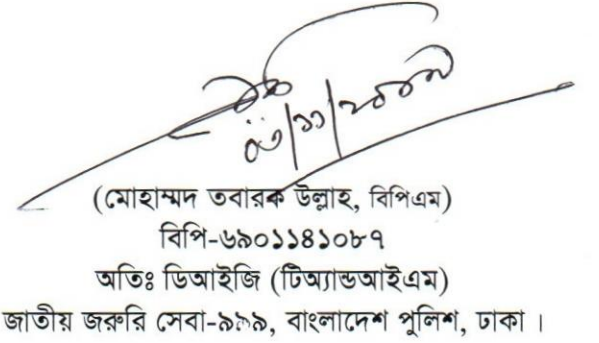 (মোহাম্মদ তবারক উল্লাহ, বিপিএম)
বিপি-৬৯০১১৪১০৮৭
অতিঃ ডিআইজি (টিঅ্যান্ডআইএম)
জাতীয় জরুরি সেবা-৯৯৯, বাংলাদেশ পুলিশ, ঢাকা ।